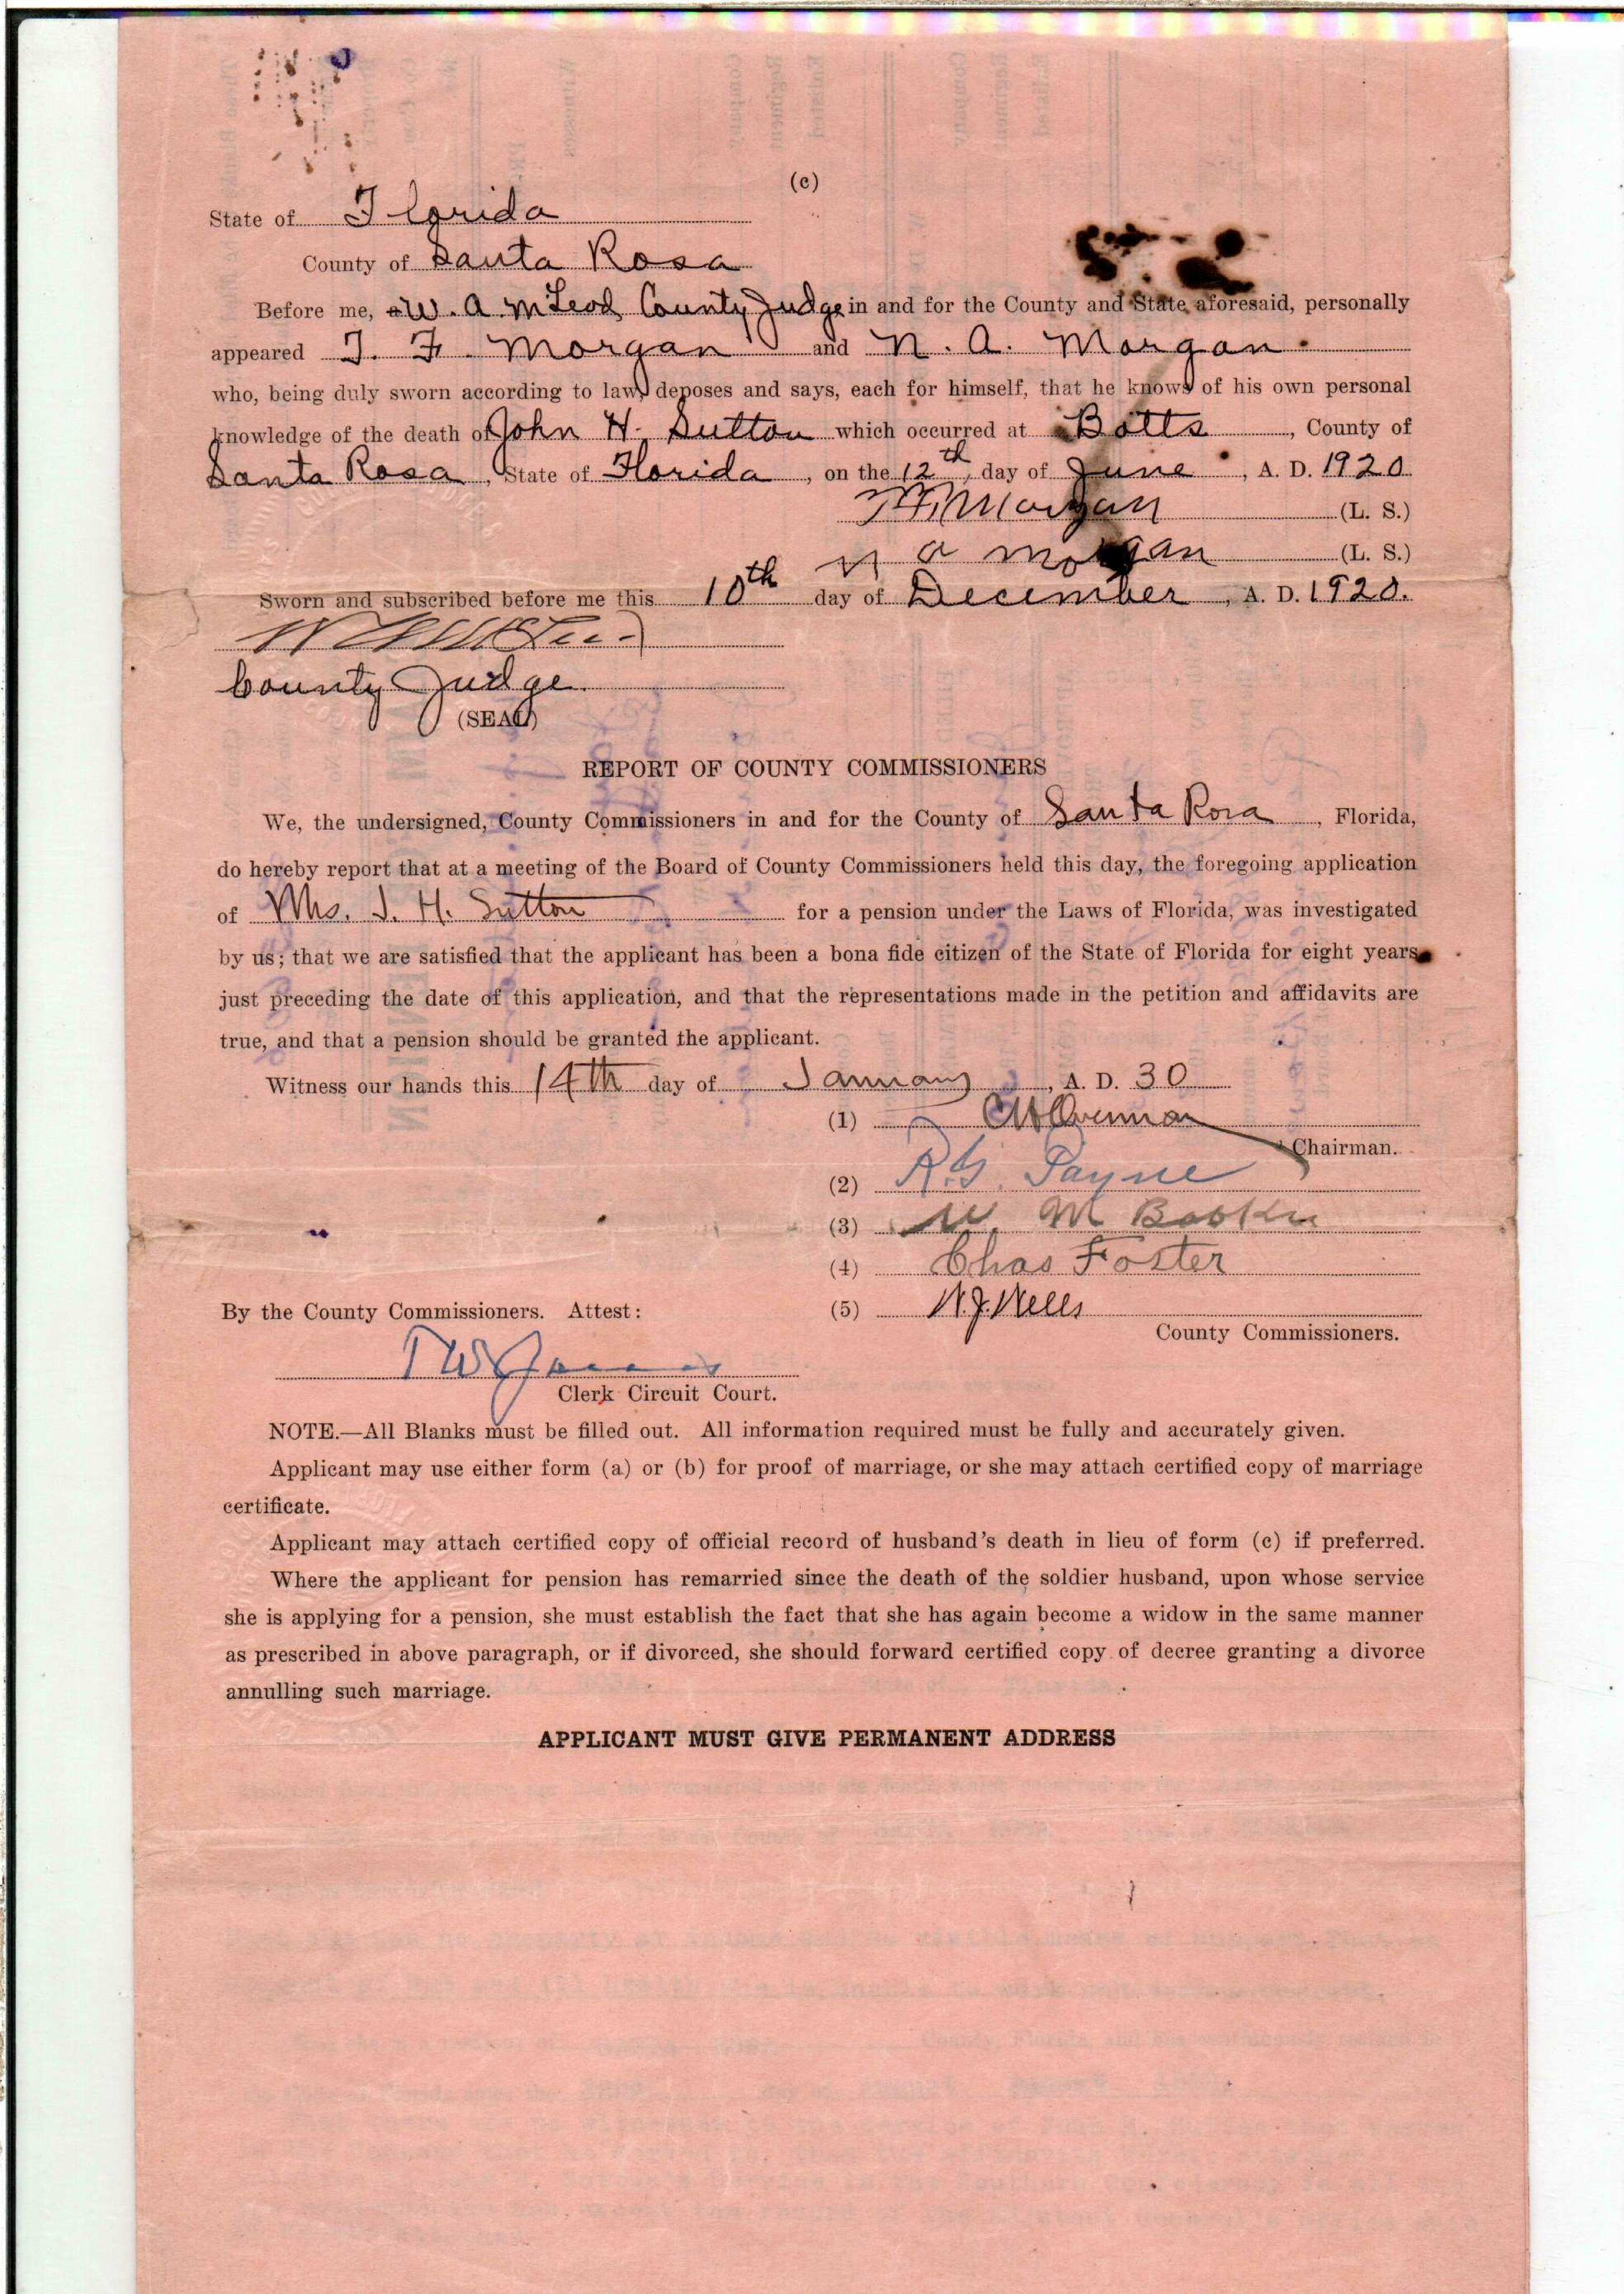 (c)
State of Florida
County of Santa Rosa
Before me, W. A. McLeod County Judge in and for the County and State aforesaid, personally
appeared T. F. Morgan and N. A. Morgan
who, being duly sworn according to law, deposes and says, each for himself, that he knows of his own personal
knowledge of the death of John H. Sutton which occurred at Botts, County of
Santa Rosa, State of Florida, on the 12th day of June, A. D. 1920
T F Morgan (L. S.)
N a morgan (L. S.)
Sworn and subscribed before me this 10th day of December, A. D. 1920.
County Judge
(SEAL)
REPORT OF COUNTY COMMISSIONERS
We, the undersigned, County Commissioners in and for the County of Santa Rosa, Florida,
do hereby report that at a meeting of the Board of County Commissioners held this day, the foregoing application
of Mrs. J. H. Sutton for a pension under the Laws of Florida, was investigated
by us; that we are satisfied that the applicant has been a bona fide citizen of the State of Florida for eight years
just preceding the date of this application, and that the representations made in the petition and affidavits are
true, and that a pension should be granted the applicant.
Witness our hands this 14th day of January, A. D. 30
(1) Overman
Chairman.
(2) R. G. Payne
(3) W. M
(4) Chas Foster
By the County Commissioners. Attest: (5) W. J. Wells
County Commissioners.
Clerk Circuit Court.
NOTE.—All Blanks must be filled out. All information required must be fully and accurately given.
Applicant may use either form (a) or (b) for proof of marriage, or she may attach certified copy of marriage
certificate.
Applicant may attach certified copy of official record of husband's death in lieu of form (c) if preferred.
Where the applicant for pension has remarried since the death of the soldier husband, upon whose service
she is applying for a pension, she must establish the fact that she has again become a widow in the same manner
as prescribed in above paragraph, or if divorced, she should forward certified copy of decree granting a divorce
annulling such marriage.
APPLICANT MUST GIVE PERMANENT ADDRESS